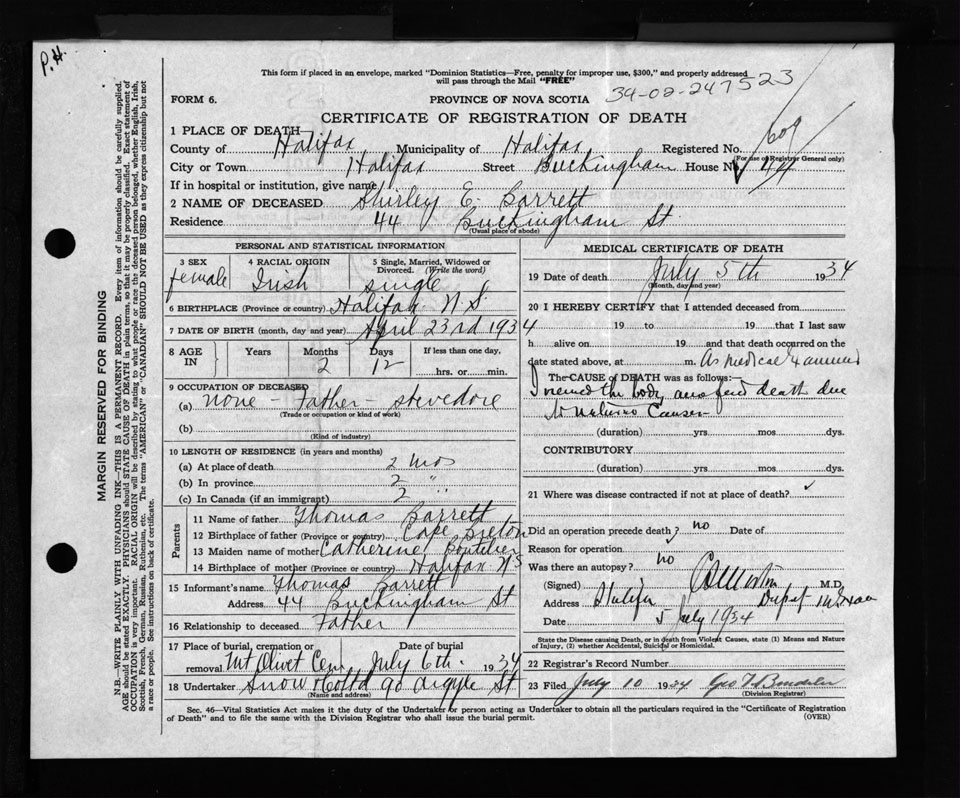 P.H.
This form if placed in an envelope, marked "Dominion Statistics—Free, penalty for improper use, $300," and properly addressed
will pass through the Mail "FREE"
34-02-247523
FORM 6. PROVINCE OF NOVA SCOTIA
CERTIFICATE OF REGISTRATION OF DEATH
609
1 PLACE OF DEATH—
County of Halifax Municipality of Halifax Registered No.
(For use of Registrar General only)
City or Town Halifax Street Buckingham House No 44
If in hospital or institution, give name
2 NAME OF DECEASED Shirley E. Barrett
Residence 44 Buckingham St
(Usual place of abode)
PERSONAL AND STATISTICAL INFORMATION
3 SEX 4 RACIAL ORIGIN 5 Single, Married, Widowed or
Divorced. (Write the word)
female Irish single
6 BIRTHPLACE (Province or country) Halifax N.S.
7 DATE OF BIRTH (month, day and year) April 23rd 1934
8 AGE IN Years Months Days If less than one day,
2 12 hrs. or min.
9 OCCUPATION OF DECEASED
(a) none - Father - stevedore
(Trade or occupation or kind of work)
(b)
(Kind of industry)
10 LENGTH OF RESIDENCE (in years and months)
(a) At place of death 2 mos
(b) In province 2 "
(c) In Canada (if an immigrant) 2 "
Parents
11 Name of father Thomas Barrett
12 Birthplace of father (Province or country) Cape Breton
13 Maiden name of mother Catherine Boutilier
14 Birthplace of mother (Province or country) Halifax NS
15 Informant's name Thomas Barrett
Address 44 Buckingham St
16 Relationship to deceased Father
17 Place of burial, cremation or Date of burial
removal Mt Olivet Cem July 6th 1934
18 Undertaker Snow & Co Ltd 90 Argyle St
(Name and address)
MEDICAL CERTIFICATE OF DEATH
19 Date of death July 5th 1934
(Month, day and year)
20 I HEREBY CERTIFY that I attended deceased from
19 to 19 that I last saw
h alive on 19 and that death occurred on the
date stated above, at m. As medical Examiner
The CAUSE of DEATH was as follows:
I viewed the body and find death due
to Natural Causes
(duration) yrs mos dys.
CONTRIBUTORY
(duration) yrs mos dys.
21 Where was disease contracted if not at place of death?
Did an operation precede death? no Date of
Reason for operation
Was there an autopsy? no
(Signed) M.D.
Address Halifax
Date 5 July 1934
State the Disease causing Death, or in death from Violent Causes, state (1) Means and Nature
of Injury, (2) whether Accidental, Suicidal or Homicidal.
22 Registrar's Record Number
23 Filed July 10 1934
(Division Registrar)
Sec. 46—Vital Statistics Act makes it the duty of the Undertaker or person acting as Undertaker to obtain all the particulars required in the "Certificate of Registration
of Death" and to file the same with the Division Registrar who shall issue the burial permit. (OVER)
MARGIN RESERVED FOR BINDING
N.B.—WRITE PLAINLY WITH UNFADING INK—THIS IS A PERMANENT RECORD. Every item of information should be carefully supplied.
AGE should be stated EXACTLY. PHYSICIANS should STATE CAUSE OF DEATH in plain terms, so that it may be properly classified. Exact statement of
OCCUPATION is very important. RACIAL ORIGIN will be described by stating to what people or race the deceased person belonged, whether English, Irish,
Scottish, French, German, Russian, Ruthenian, etc. The terms "AMERICAN" or "CANADIAN" SHOULD NOT BE USED as they express citizenship but not
a race or people. See instructions on back of certificate.